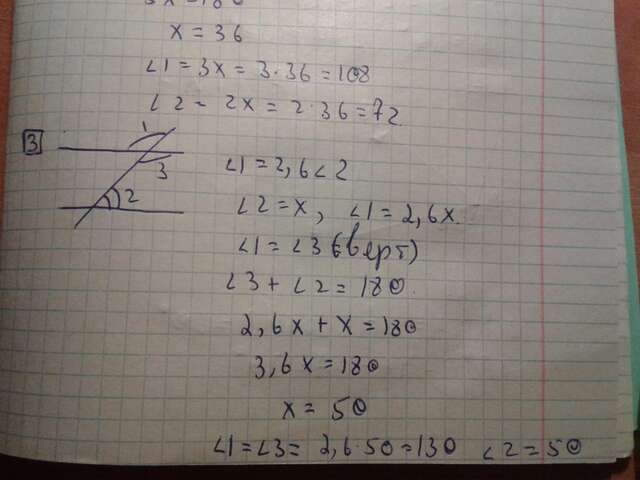 x = 36
∠1 = 3x = 3·36 = 108
∠2 = 2x = 2·36 = 72
3
1
3
2
∠1 = 2,6∠2
∠2 = x, ∠1 = 2,6x
∠1 = ∠3 (верт)
∠3 + ∠2 = 180
2,6x + x = 180
3,6x = 180
x = 50
∠1 = ∠3 = 2,6·50 = 130 ∠2 = 50